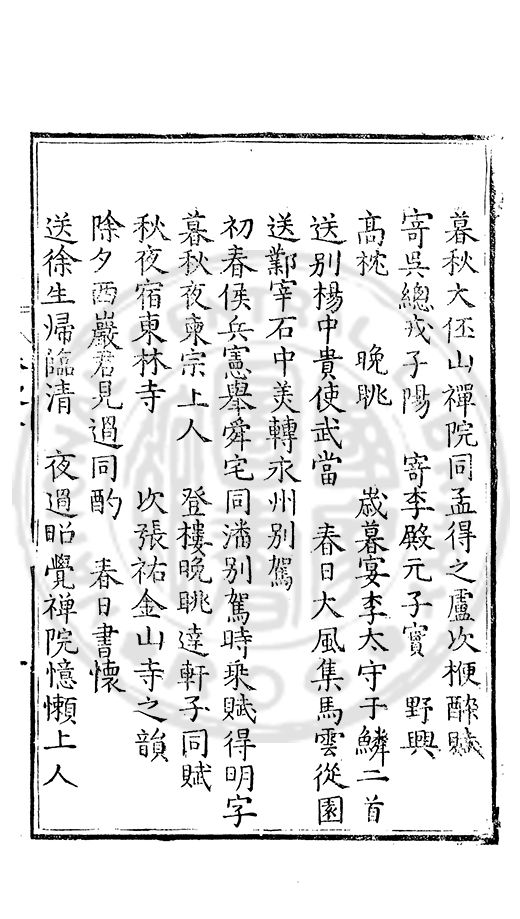 暮秋大伾山禪院同孟得之盧次楩醉賦
寄吳總戎子陽　寄李殿元子實　野興
高枕　晚眺　歲暮宴李太守于鱗二首
送別楊中貴使武當　春日大風集馬雲從園
送鄴宰石中美轉永州別駕
初春侯兵憲舉舜宅同潘別駕時乘賦得明字
暮秋夜柬宗上人　登樓晚眺達軒子同賦
秋夜宿東林寺　次張祐金山寺之韻
除夕西巖君見過同酌　春日書懷
送徐生歸臨清　夜過昭覺禅院憶懶上人